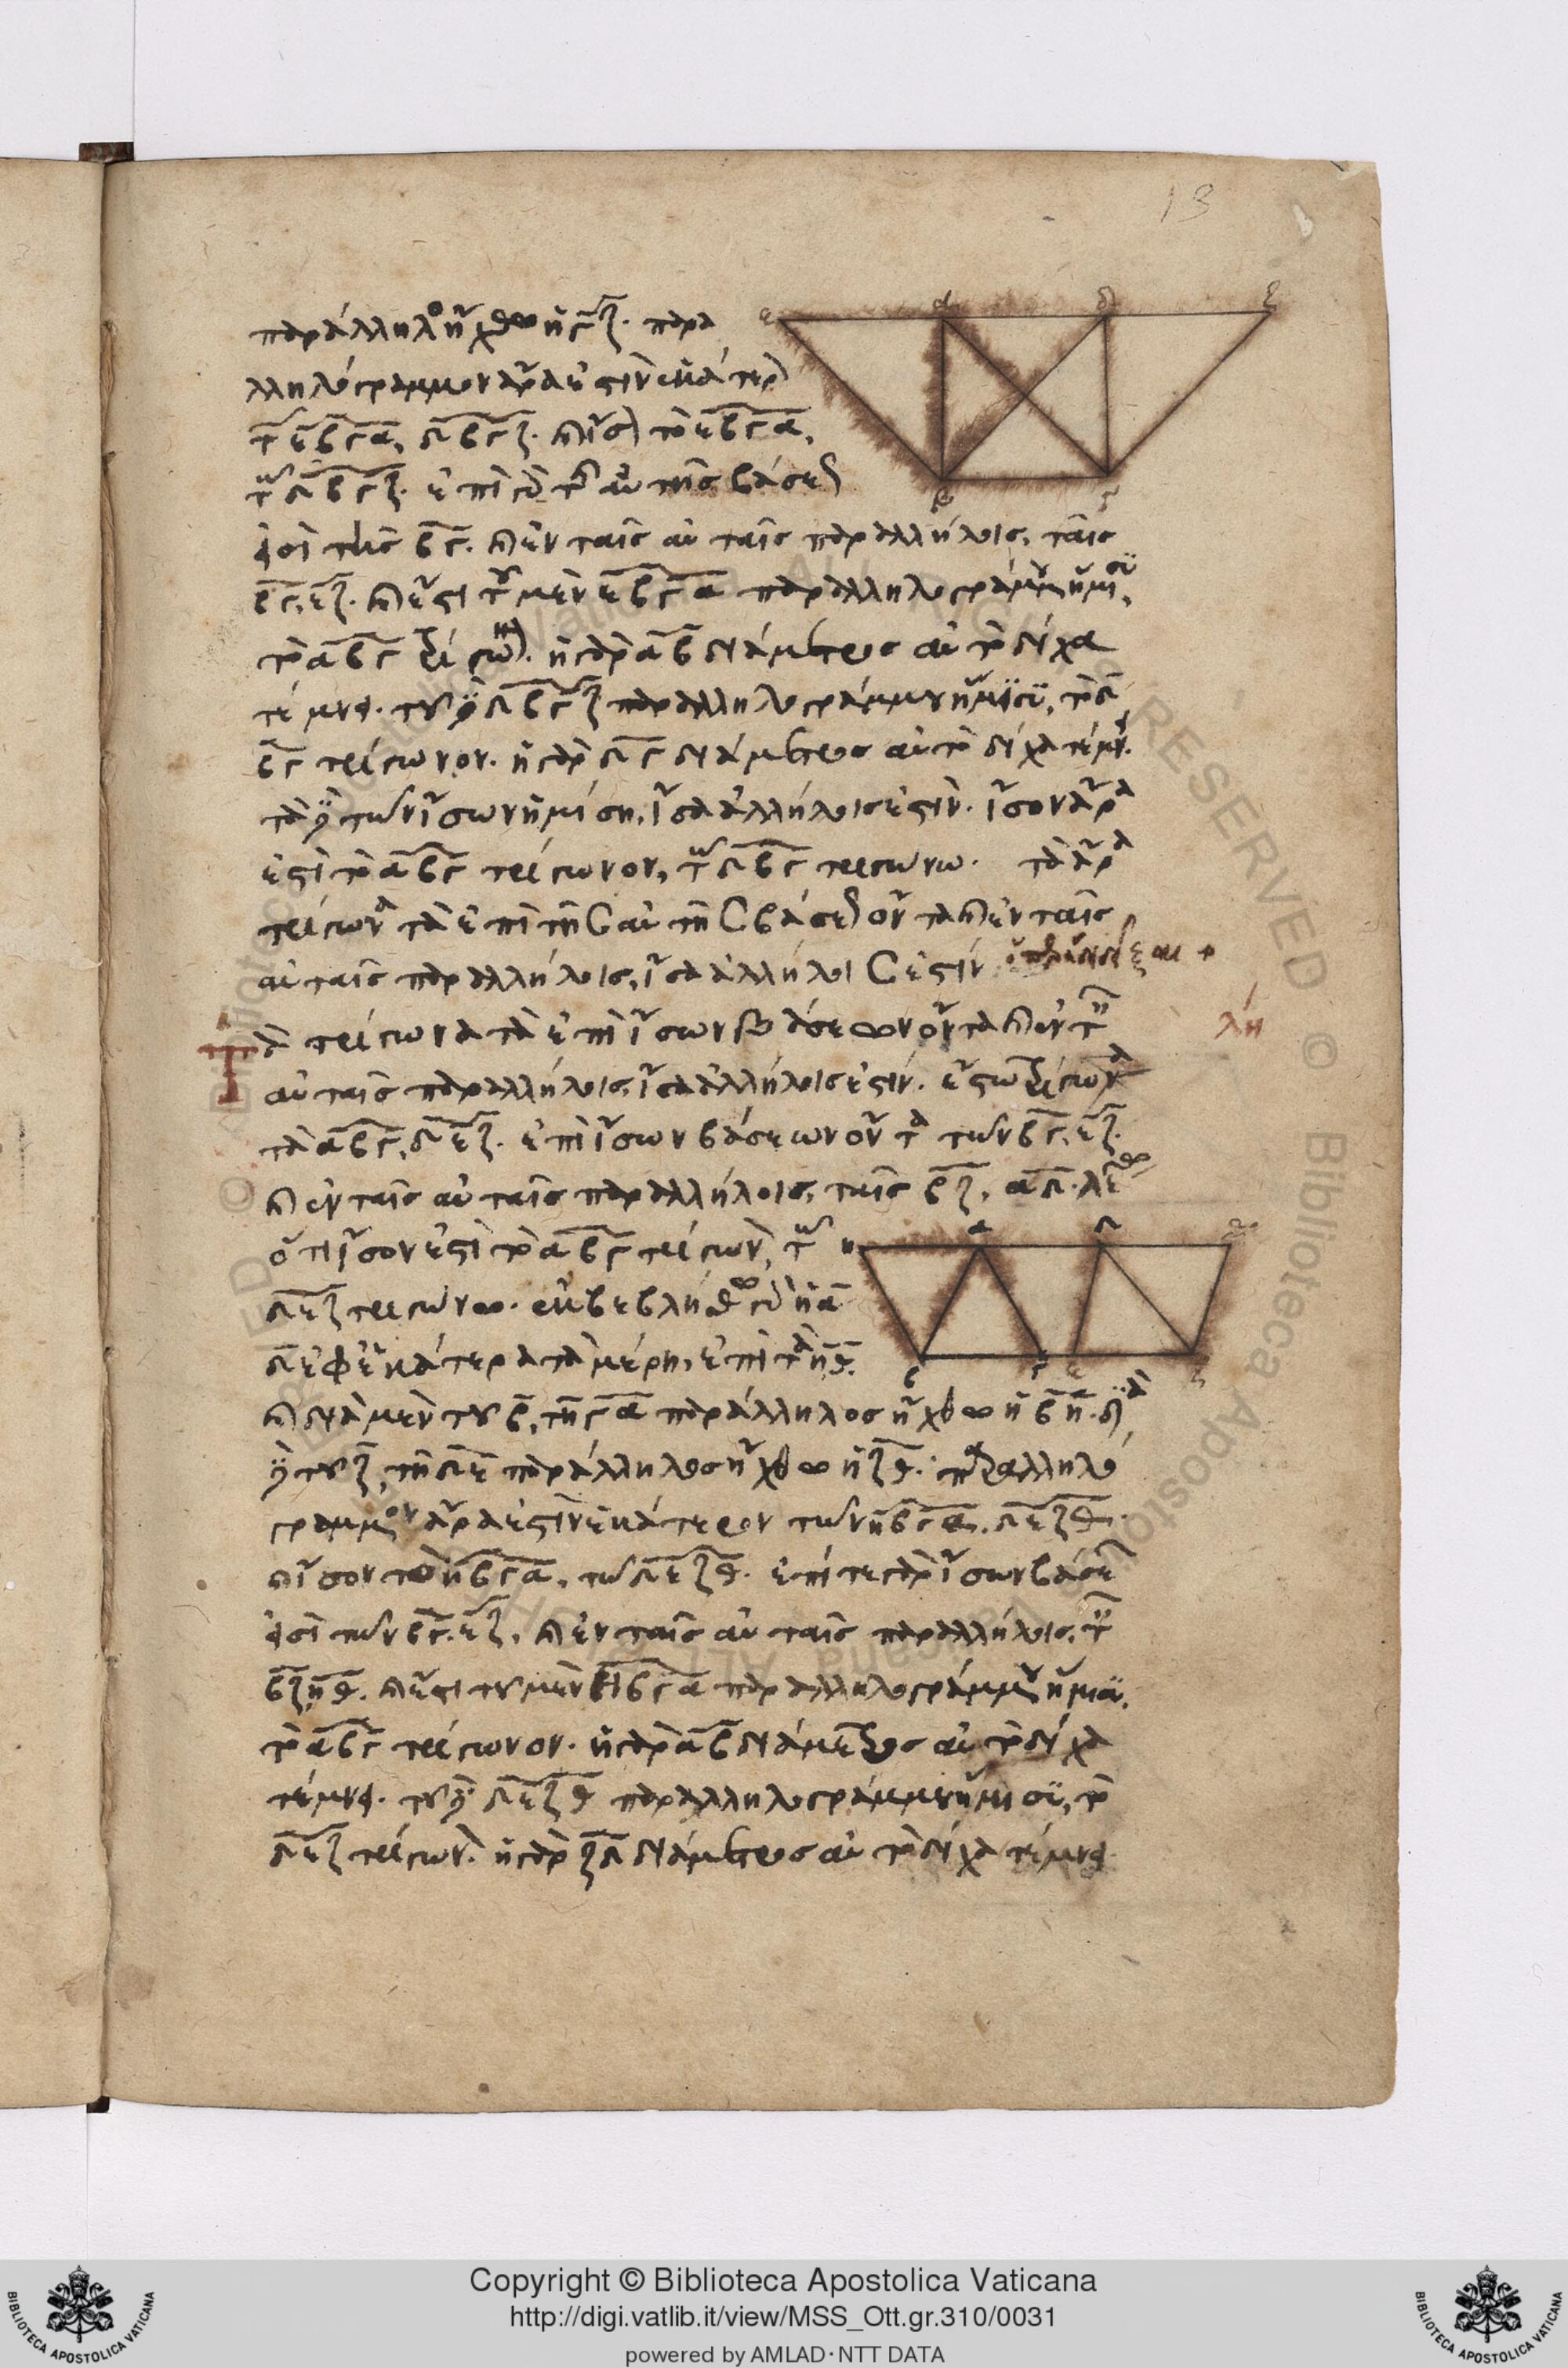 13
παράλληλος ἤχθω ἡ γζ. παρα
λληλόγραμμον ἄρα ἐστὶν ἑκάτερον
τῶν εβγα, δβγζ. καὶ ἴσον τὸ εβγα,
τῷ δβγζ. ἐπί τε γὰρ τῆς αὐτῆς βάσεώς
εἰσι τῆς βγ. καὶ ἐν ταῖς αὐταῖς παραλλήλοις, ταῖς
βγ, εζ. καὶ ἔστι τοῦ μὲν εβγα παραλληλογράμμου ἥμισυ,
τὸ αβγ τρίγωνον. ἡ γὰρ αβ διάμετρος αὐτὸ δίχα
τέμνει. τοῦ δὲ δβγζ παραλληλογράμμου ἥμισυ, τὸ δ
βγ τρίγωνον. ἡ γὰρ δγ διάμετρος αὐτὸ δίχα τέμνει.
τὰ δὲ τῶν ἴσων ἡμίση, ἴσα ἀλλήλοις ἐστίν. ἴσον ἄρα
ἐστὶ τὸ αβγ τρίγωνον, τῷ δβγ τριγώνω. τὰ ἄρα
τρίγωνα τὰ ἐπὶ τῆς αὐτῆς βάσεως ὄντα καὶ ἐν ταῖς
αὐταῖς παραλλήλοις, ἴσα ἀλλήλοις ἐστίν ὅπερ ἔδει δεῖξαι
λη
Τὰ τρίγωνα τὰ ἐπὶ ἴσων βάσεων ὄντα καὶ ἐν ταῖς
αὐταῖς παραλλήλοις, ἴσα ἀλλήλοις ἐστίν. ἔστω τρίγωνα
τὰ αβγ, δεζ. ἐπὶ ἴσων βάσεων ὄντα τῶν βγ, εζ.
καὶ ἐν ταῖς αὐταῖς παραλλήλοις, ταῖς βζ, αδ. λέγω
ὅτι ἴσον ἐστὶ τὸ αβγ τρίγωνον, τῷ
δεζ τριγώνω. ἐκβεβλήσθω γὰρ ἡ α
δ ἐφ' ἑκάτερα τὰ μέρη, ἐπὶ τὰ η, θ.
καὶ διὰ μὲν τοῦ β, τῇ γα παράλληλος ἤχθω ἡ βη. διὰ
δὲ τοῦ ζ, τῇ δε παράλληλος ἤχθω ἡ ζθ. παραλληλό
γραμμον ἄρα ἐστὶν ἑκάτερον τῶν ηβγα, δεζθ.
καὶ ἴσον τὸ ηβγα, τῶ δεζθ. ἐπί τε γὰρ ἴσων βάσεών
εἰσι τῶν βγ, εζ, καὶ ἐν ταῖς αὐταῖς παραλλήλοις, ταῖς
βζ, ηθ. καὶ ἔστι τοῦ μὲν ηβγα παραλληλογράμμου ἥμισυ,
τὸ αβγ τρίγωνον. ἡ γὰρ αβ διάμετρος αὐτὸ δίχα
τέμνει. τοῦ δὲ δεζθ παραλληλογράμμου ἥμισυ, τὸ
δεζ τρίγωνον. ἡ γὰρ ζδ διάμετρος αὐτὸ δίχα τέμνει.
Copyright © Biblioteca Apostolica Vaticana
http://digi.vatlib.it/view/MSS_Ott.gr.310/0031
powered by AMLAD·NTT DATA